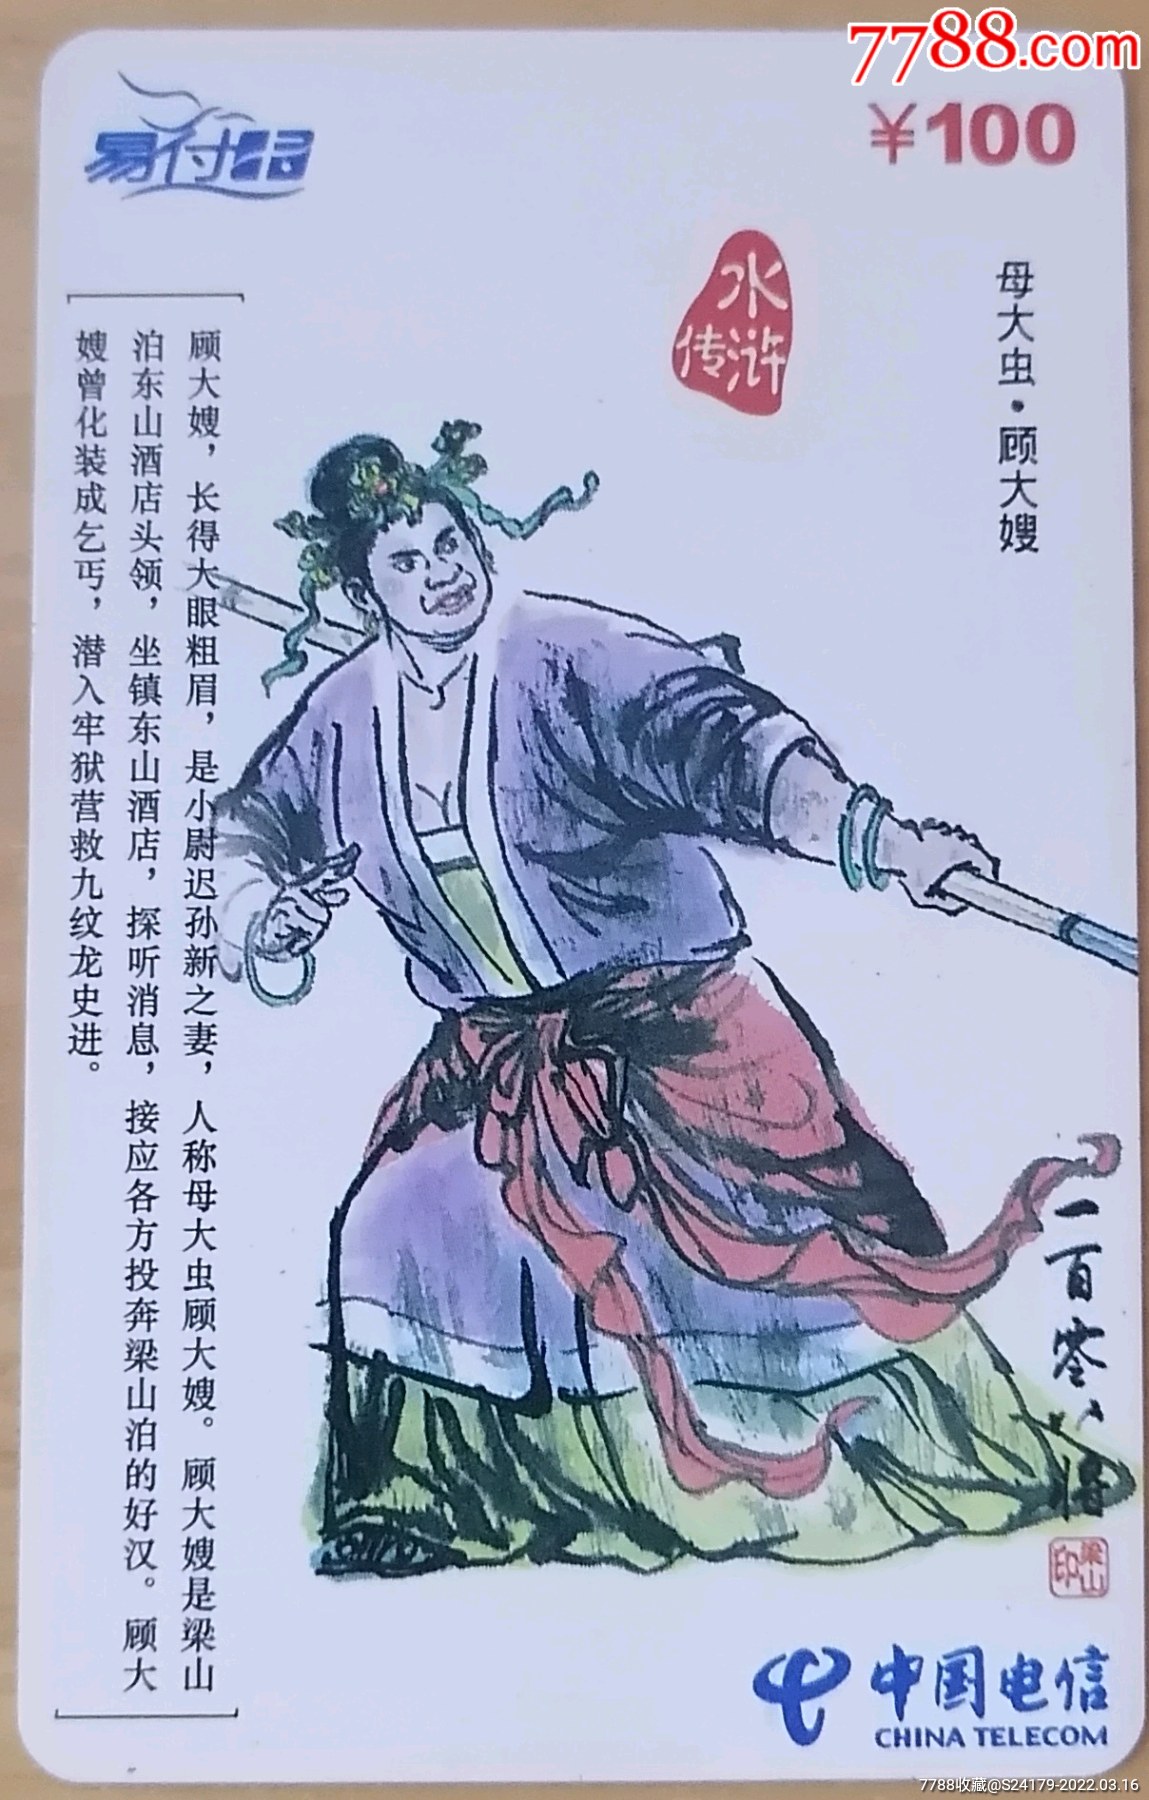 7788.com
易付通
¥100
水浒传
母大虫·顾大嫂
顾大嫂，长得大眼粗眉，是小尉迟孙新之妻，人称母大虫顾大嫂。顾大嫂是梁山
泊东山酒店头领，坐镇东山酒店，探听消息，接应各方投奔梁山泊的好汉。顾大
嫂曾化装成乞丐，潜入牢狱营救九纹龙史进。
一百零八将
梁山印
中国电信
CHINA TELECOM
7788收藏@S24179-2022.03.16